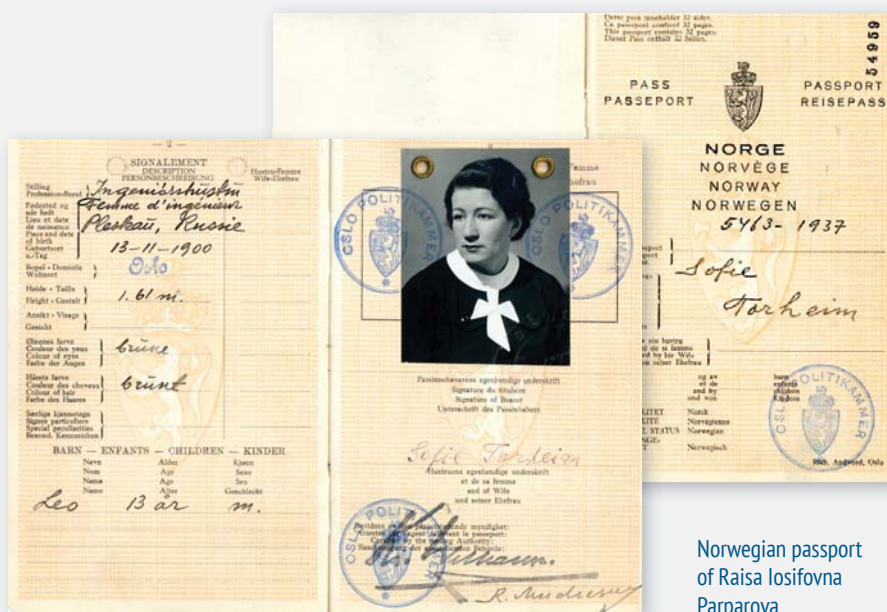 Dette pass inneholder 32 sider.
Ce passeport contient 32 pages.
This passport contains 32 pages.
Dieser Pass enthält 32 Seiten.
54959
PASS
PASSEPORT
PASSPORT
REISEPASS
NORGE
NORVÈGE
NORWAY
NORWEGEN
5463-1937
Sofie
Torheim
sin hustru
et de sa femme
by his Wife
seiner Ehefrau
og av
et de
and by
und von
barn
enfants
children
Kindern
Norsk
Norvégienne
STATUS Norwegian
Norwegisch
OSLO POLITIKAMMER
Andvord, Oslo
SIGNALEMENT
DESCRIPTION
PERSONBESCHREIBUNG
Hustru-Femme
Wife-Ehefrau
Stilling
Profession-Beruf
Ingeniørshustru
Femme d'ingénieur
Fødested og
når født
Lieu et date
de naissance
Place and date
of birth
Geburtsort
u. Tag
Pleskau, Russie
13-11-1900
Bopel - Domicile
Wohnort
Oslo
Høide - Taille
Height - Gestalt
1.61 m.
Ansikt - Visage
Gesicht
Øinenes farve
Couleur des yeux
Colour of eyes
Farbe der Augen
brune
Hårets farve
Couleur des cheveux
Colour of hair
Farbe des Haares
brunt
Særlige kjennetegn
Signes particuliers
Special peculiarities
Besond. Kennzeichen
BARN — ENFANTS — CHILDREN — KINDER
Navn Alder Kjønn
Nom Age Sexe
Name Age Sex
Name Alter Geschlecht
Leo 13 år m.
Femme
Ehefrau
OSLO POLITIKAMMER
OSLO POLITIKAMMER
Passinnehaverens egenhendige underskrift
Signature du titulaire
Signature of Bearer
Unterschrift des Passinhabers
Sofie Torheim
Hustruens egenhendige underskrift
et de sa femme
and of Wife
und seiner Ehefrau
OSLO POLITIKAMMER
Norwegian passport
of Raisa Iosifovna
Parparova